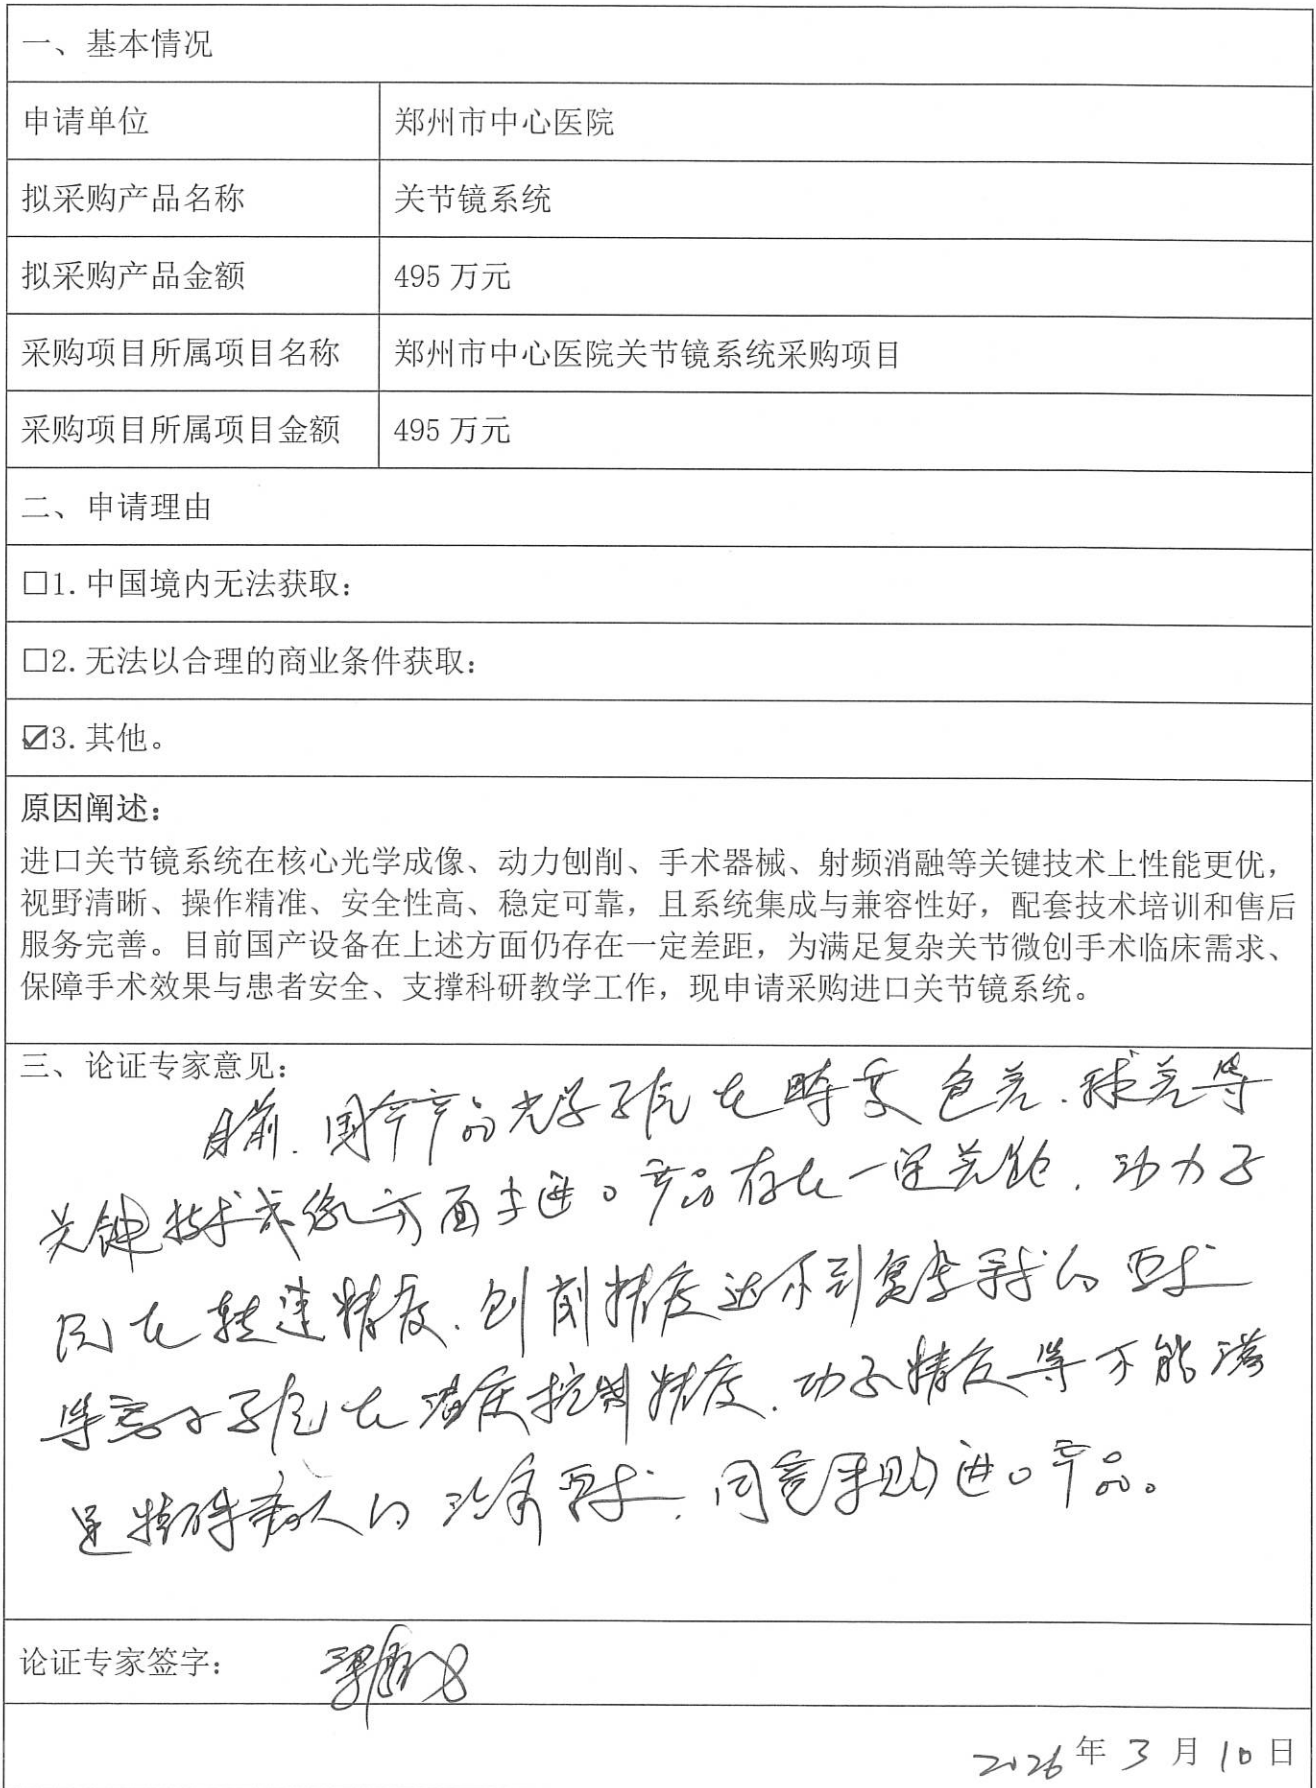 一、基本情况
申请单位 郑州市中心医院
拟采购产品名称 关节镜系统
拟采购产品金额 495 万元
采购项目所属项目名称 郑州市中心医院关节镜系统采购项目
采购项目所属项目金额 495 万元
二、申请理由
□1.中国境内无法获取：
□2.无法以合理的商业条件获取：
☑3.其他。
原因阐述：
进口关节镜系统在核心光学成像、动力刨削、手术器械、射频消融等关键技术上性能更优，
视野清晰、操作精准、安全性高、稳定可靠，且系统集成与兼容性好，配套技术培训和售后
服务完善。目前国产设备在上述方面仍存在一定差距，为满足复杂关节微创手术临床需求、
保障手术效果与患者安全、支撑科研教学工作，现申请采购进口关节镜系统。
三、论证专家意见：
目前.国产产品光学系统在畸变 色差.球差等
关键技术成像方面与进口产品存在一定差距.动力系
统在转速精度.刨削精度达不到复杂手术的要求
等离子系统在温度控制精度.功率精度等不能满
足特殊病人的治疗要求.同意采购进口产品。
论证专家签字：
2026年3月10日